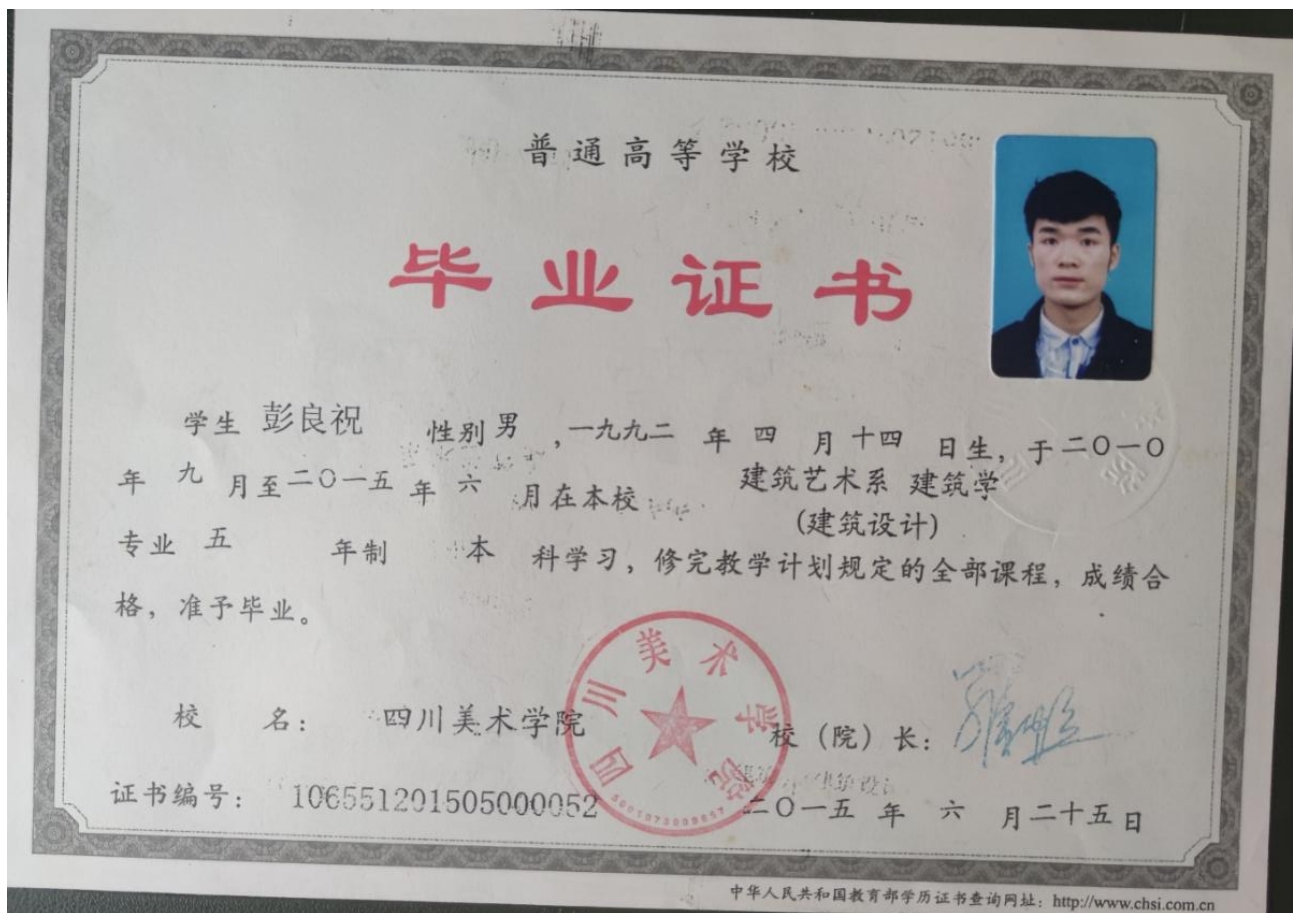 普通高等学校
毕业证书
学生 彭良祝 性别 男 ,一九九二 年 四 月 十四 日生，于二〇一〇
年 九 月至二〇一五 年 六 月在本校 建筑艺术系 建筑学
(建筑设计)
专业 五 年制 本 科学习，修完教学计划规定的全部课程，成绩合
格，准予毕业。
四川美术学院
校 名： 四川美术学院 校（院）长：
证书编号： 106551201505000052 二〇一五 年 六 月二十五日
中华人民共和国教育部学历证书查询网址：http://www.chsi.com.cn